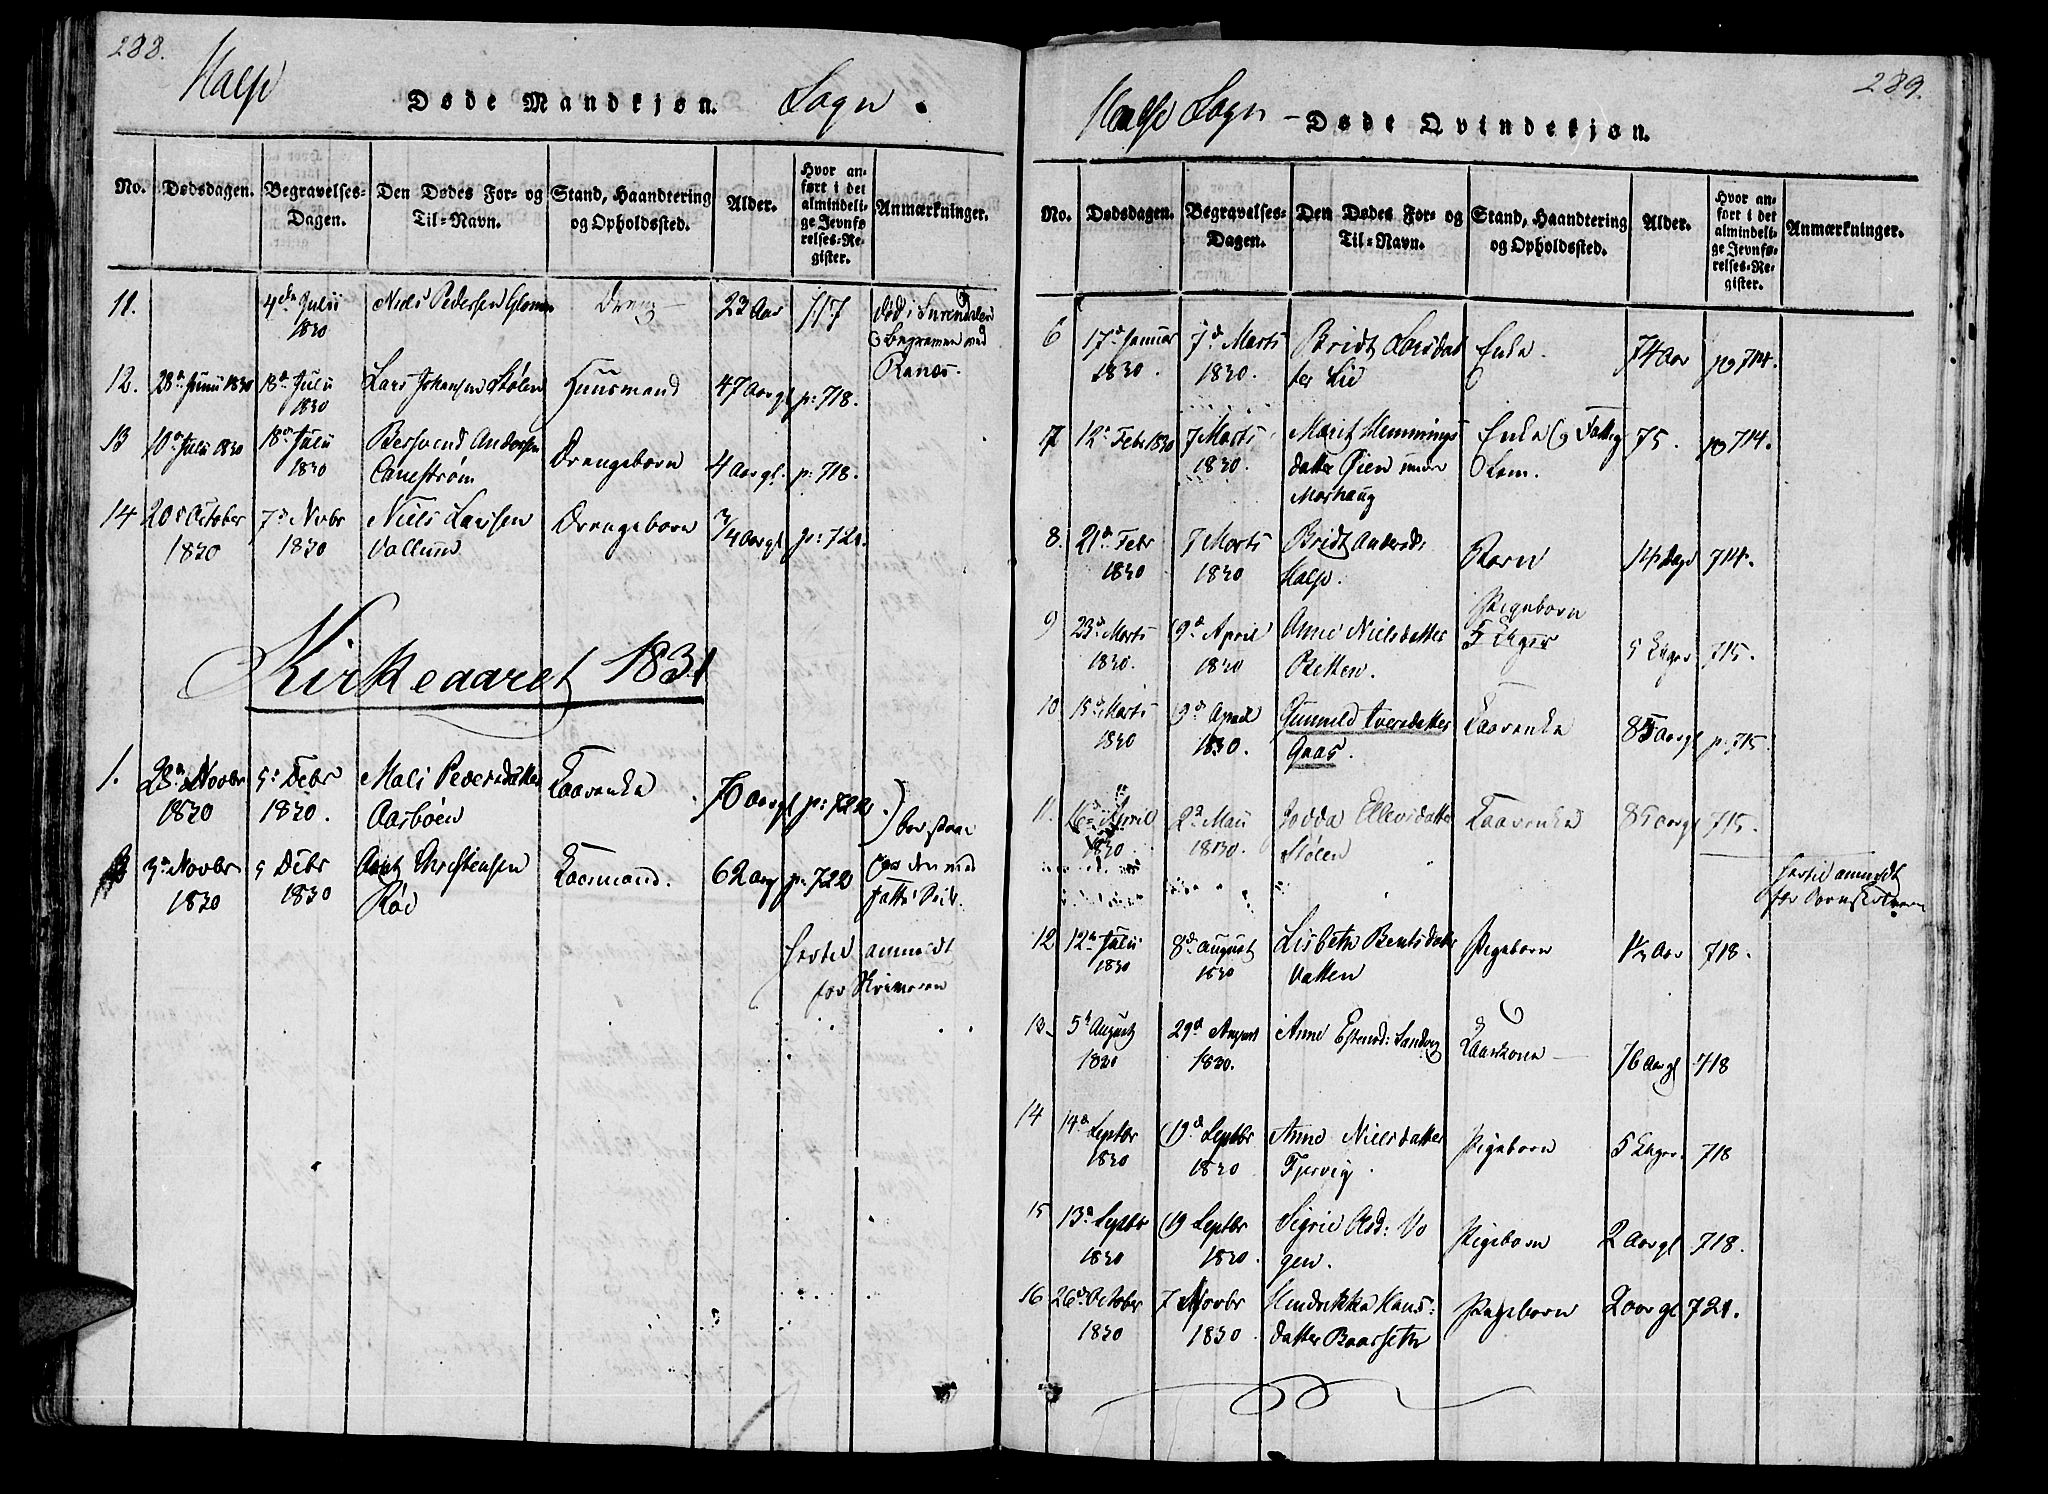 288.
Halse
Døde Mandkjøn.
Sogn.
No.
Dødsdagen.
Begravelses-
Dagen.
Den Dødes For- og
Til-Navn.
Stand, Haandtering
og Opholdssted.
Alder.
Hvor an-
ført i det
almindeli-
ge Jevnfø-
relses-Re-
gister.
Anmærkninger.
11.
4de Julii
1830
Niels Pedersen Glomen
Dreng
23 Aar
717
død i Surendalen
Begraven ved
Ranes.
12.
28de Junii 1830
18de Julii
1830
Lars Johansen Stølen
Huusmand
47 Aar gl
p: 718.
13
10de Julii 1830
18de Julii
1830
Bersvend Andersen
Drengebarn
4 Aar gl.
p: 718.
14
20de October
1830
7de Novbr
1830
Niels Larsen
Vallum
Drengebarn
3/4 Aar gl
p: 721.
Kirkeaaret 1831
1.
28de Novbr
1830
5: Debr
1830.
Mali Pedersdatter
Aasbøen
Kaarenke
76 Aar gl
p: 722
3de Novbr
1830
5 Debr
1830
Christensen
Rød
Kaarmand.
62 Aar
p: 722
hertil anmeldt
289.
Halse Sogn - Døde Qvindekjøn.
No.
Dødsdagen.
Begravelses-
Dagen.
Den Dødes For- og
Til-Navn.
Stand, Haandtering
og Opholdssted.
Alder.
Hvor an-
ført i det
almindeli-
ge Jevnfø-
relses-Re-
gister.
Anmærkninger.
6
17de Januar
1830.
7de Marts
1830.
Bridt Larsdat
ter Lie
Enke.
74 Aar
p 714.
7
12te Febr 1830
7 Marts
1830.
Marit Hemmings
datter Øien under
Morhaug
Enke og Fattig
Lem.
75.
p 714.
8.
21de Febr
1830
7 Marts
1830
Bridt Andersd:
Halse.
Barn
14 Dage
714.
9
23de Marts
1830.
9de April
1830
Anne Nielsdatter
Botten.
Pigebarn
5 Uger
5 Uger
715.
10
15de Marts
1830
9de April
1830.
Gunnild Iversdatter
Gaas.
Kaarenke
85 Aar gl
p. 715.
11.
16de April
1830
2de Mai
1830.
Ellevsdatter
Stølen
Kaarenke
85 aar gl
715.
hertil anmeldt
12
12te Julii
1830
8de August
1830
Lisbeth Bentsdatter
Vatten
Pigebarn
1½ Aar
718.
13.
5te August
1830
29de August
1830.
Anne Estensd: Sandvig
Kaarkone
76 Aar gl
718
14
14de Septbr
1830
19de Septbr
1830
Anne Nielsdatter
Fjervig.
Pigebarn
5 Uger.
718
15
13de Septbr
1830
19 Septbr
1830.
Sigrie Olsd: Vo
gen.
Pigebarn
2 Aar gl
718.
16
26de October
1830
7 Novbr
1830
Hendrikka Hans:
datter Baarseth
Pigebarn
2 aar gl
721.